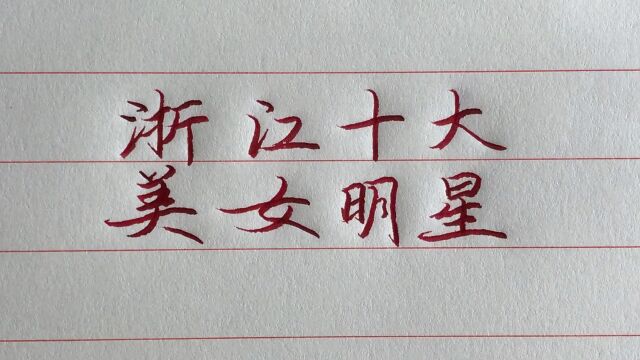 浙江十大
美女明星